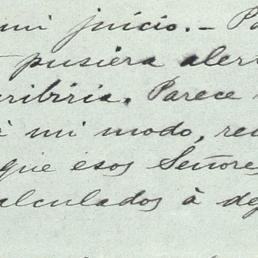 mi juicio.- Pa
pusiera aler
ribiria. Parece
à mi modo, re
que esos Señores
alculados à de